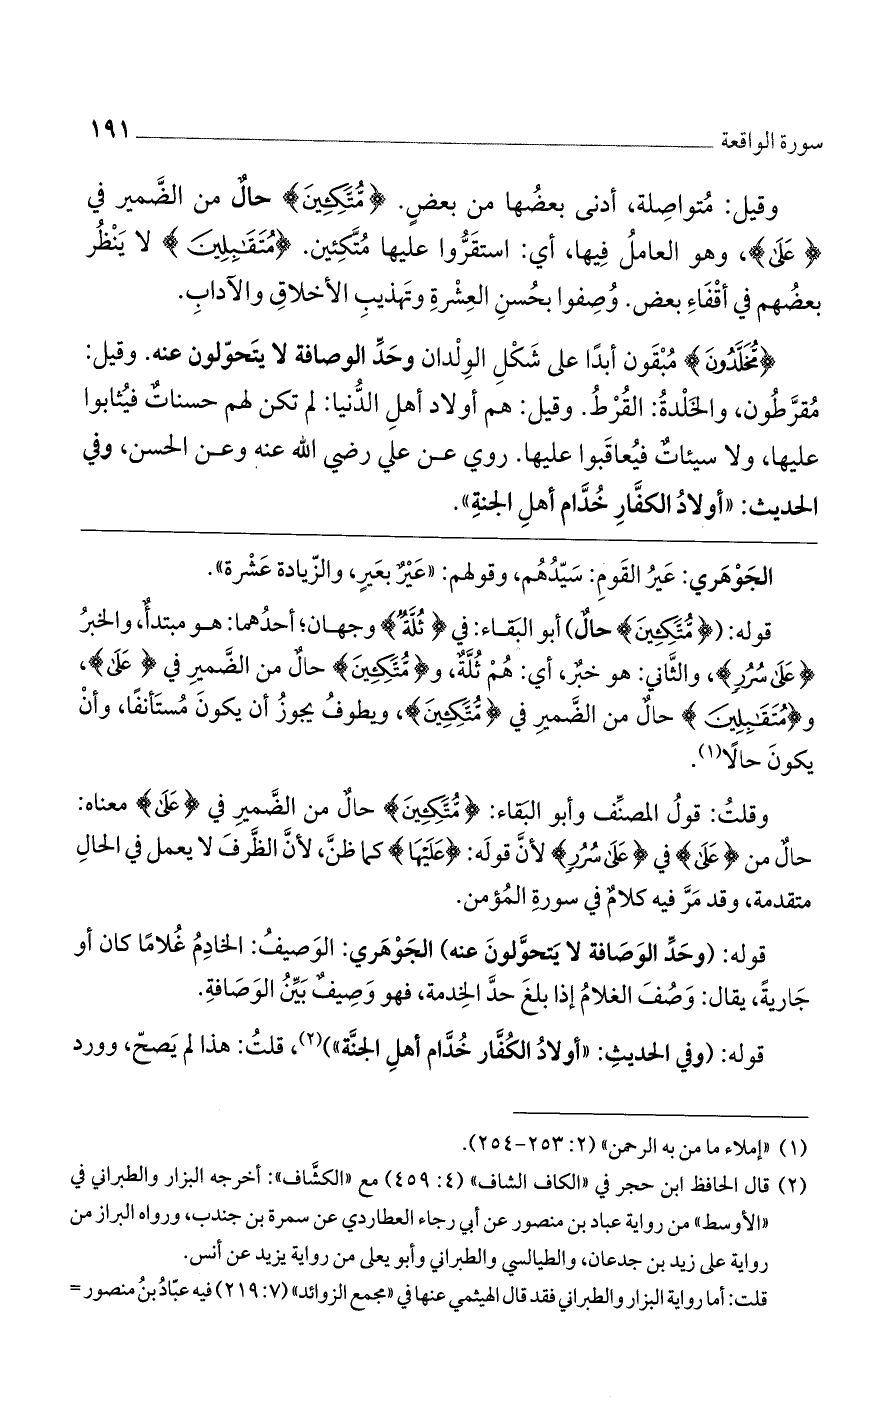 سورة الواقعة ١٩١
وقيل: مُتواصِلة، أدنى بعضُها من بعضٍ. ﴿مُتَّكِئِينَ﴾ حالٌ من الضَّمير في
﴿عَلَى﴾، وهو العاملُ فيها، أي: استقرُّوا عليها مُتَّكِئين. ﴿مُتَقَابِلِينَ﴾ لا يَنْظُر
بعضُهم في أقْفَاءِ بعض. وُصِفوا بحُسنِ العِشْرةِ وتهذيبِ الأخلاقِ والآدابِ.
﴿مُخَلَّدُونَ﴾ مُبْقَون أبدًا على شَكْلِ الوِلْدان وحَدِّ الوصافة لا يتَحوّلون عنه. وقيل:
مُقرَّطُون، والخَلْدةُ: القُرْطُ. وقيل: هم أولاد أهلِ الدُّنيا: لم تكن لهم حسناتٌ فيُثابوا
عليها، ولا سيئاتٌ فيُعاقَبوا عليها. روي عن علي رضي الله عنه وعن الحسن، وفي
الحديث: «أولادُ الكفَّارِ خُدَّام أهلِ الجنةِ».
الجَوْهَري: عَيرُ القَومِ: سَيّدُهُم، وقولهم: «عَيْرٌ بعَيرٍ، والزّيادة عَشْرة».
قوله: (﴿مُتَّكِئِينَ﴾ حالٌ) أبو البَقاء: في ﴿ثُلَّةٌ﴾ وجهان؛ أحدُهما: هو مبتدأٌ، والخبرُ
﴿عَلَى سُرُرٍ﴾، والثَّاني: هو خبرٌ، أي: هُمْ ثُلَّةٌ، و﴿مُتَّكِئِينَ﴾ حالٌ من الضَّميرِ في ﴿عَلَى﴾،
و﴿مُتَقَابِلِينَ﴾ حالٌ من الضَّميرِ في ﴿مُتَّكِئِينَ﴾، ويطوفُ يجوزُ أن يكونَ مُستَأنفًا، وأنْ
يكونَ حالًا(١).
وقلتُ: قولُ المصنِّف وأبو البَقاء: ﴿مُتَّكِئِينَ﴾ حالٌ من الضَّميرِ في ﴿عَلَى﴾ معناه:
حالٌ من ﴿عَلَى﴾ في ﴿عَلَى سُرُرٍ﴾ لأنَّ قولَه: ﴿عَلَيْهَا﴾ كما ظنَّ، لأنَّ الظَّرفَ لا يعمل في الحالِ
متقدمة، وقد مَرَّ فيه كلامٌ في سورةِ المُؤمن.
قوله: (وحَدِّ الوَصَافة لا يَتحوَّلونَ عنه) الجَوْهَري: الوَصيفُ: الخادِمُ غُلامًا كان أو
جَاريةً، يقال: وَصُفَ الغلامُ إذا بلغَ حدَّ الخِدمة، فهو وَصِيفٌ بَيِّنُ الوَصَافةِ.
قوله: (وفي الحديثِ: «أولادُ الكُفَّار خُدَّام أهلِ الجنَّة»)(٢)، قلتُ: هذا لم يَصحّ، وورد
(١) «إملاء ما من به الرحمن» (٢: ٢٥٣-٢٥٤).
(٢) قال الحافظ ابن حجر في «الكاف الشاف» (٤: ٤٥٩) مع «الكشَّاف»: أخرجه البزار والطبراني في
«الأوسط» من رواية عباد بن منصور عن أبي رجاء العطاردي عن سمرة بن جندب، ورواه البراز من
رواية على زيد بن جدعان، والطيالسي والطبراني وأبو يعلى من رواية يزيد عن أنس.
قلت: أما رواية البزار والطبراني فقد قال الهيثمي عنها في «مجمع الزوائد» (٧: ٢١٩) فيه عبّادُ بنُ منصور =